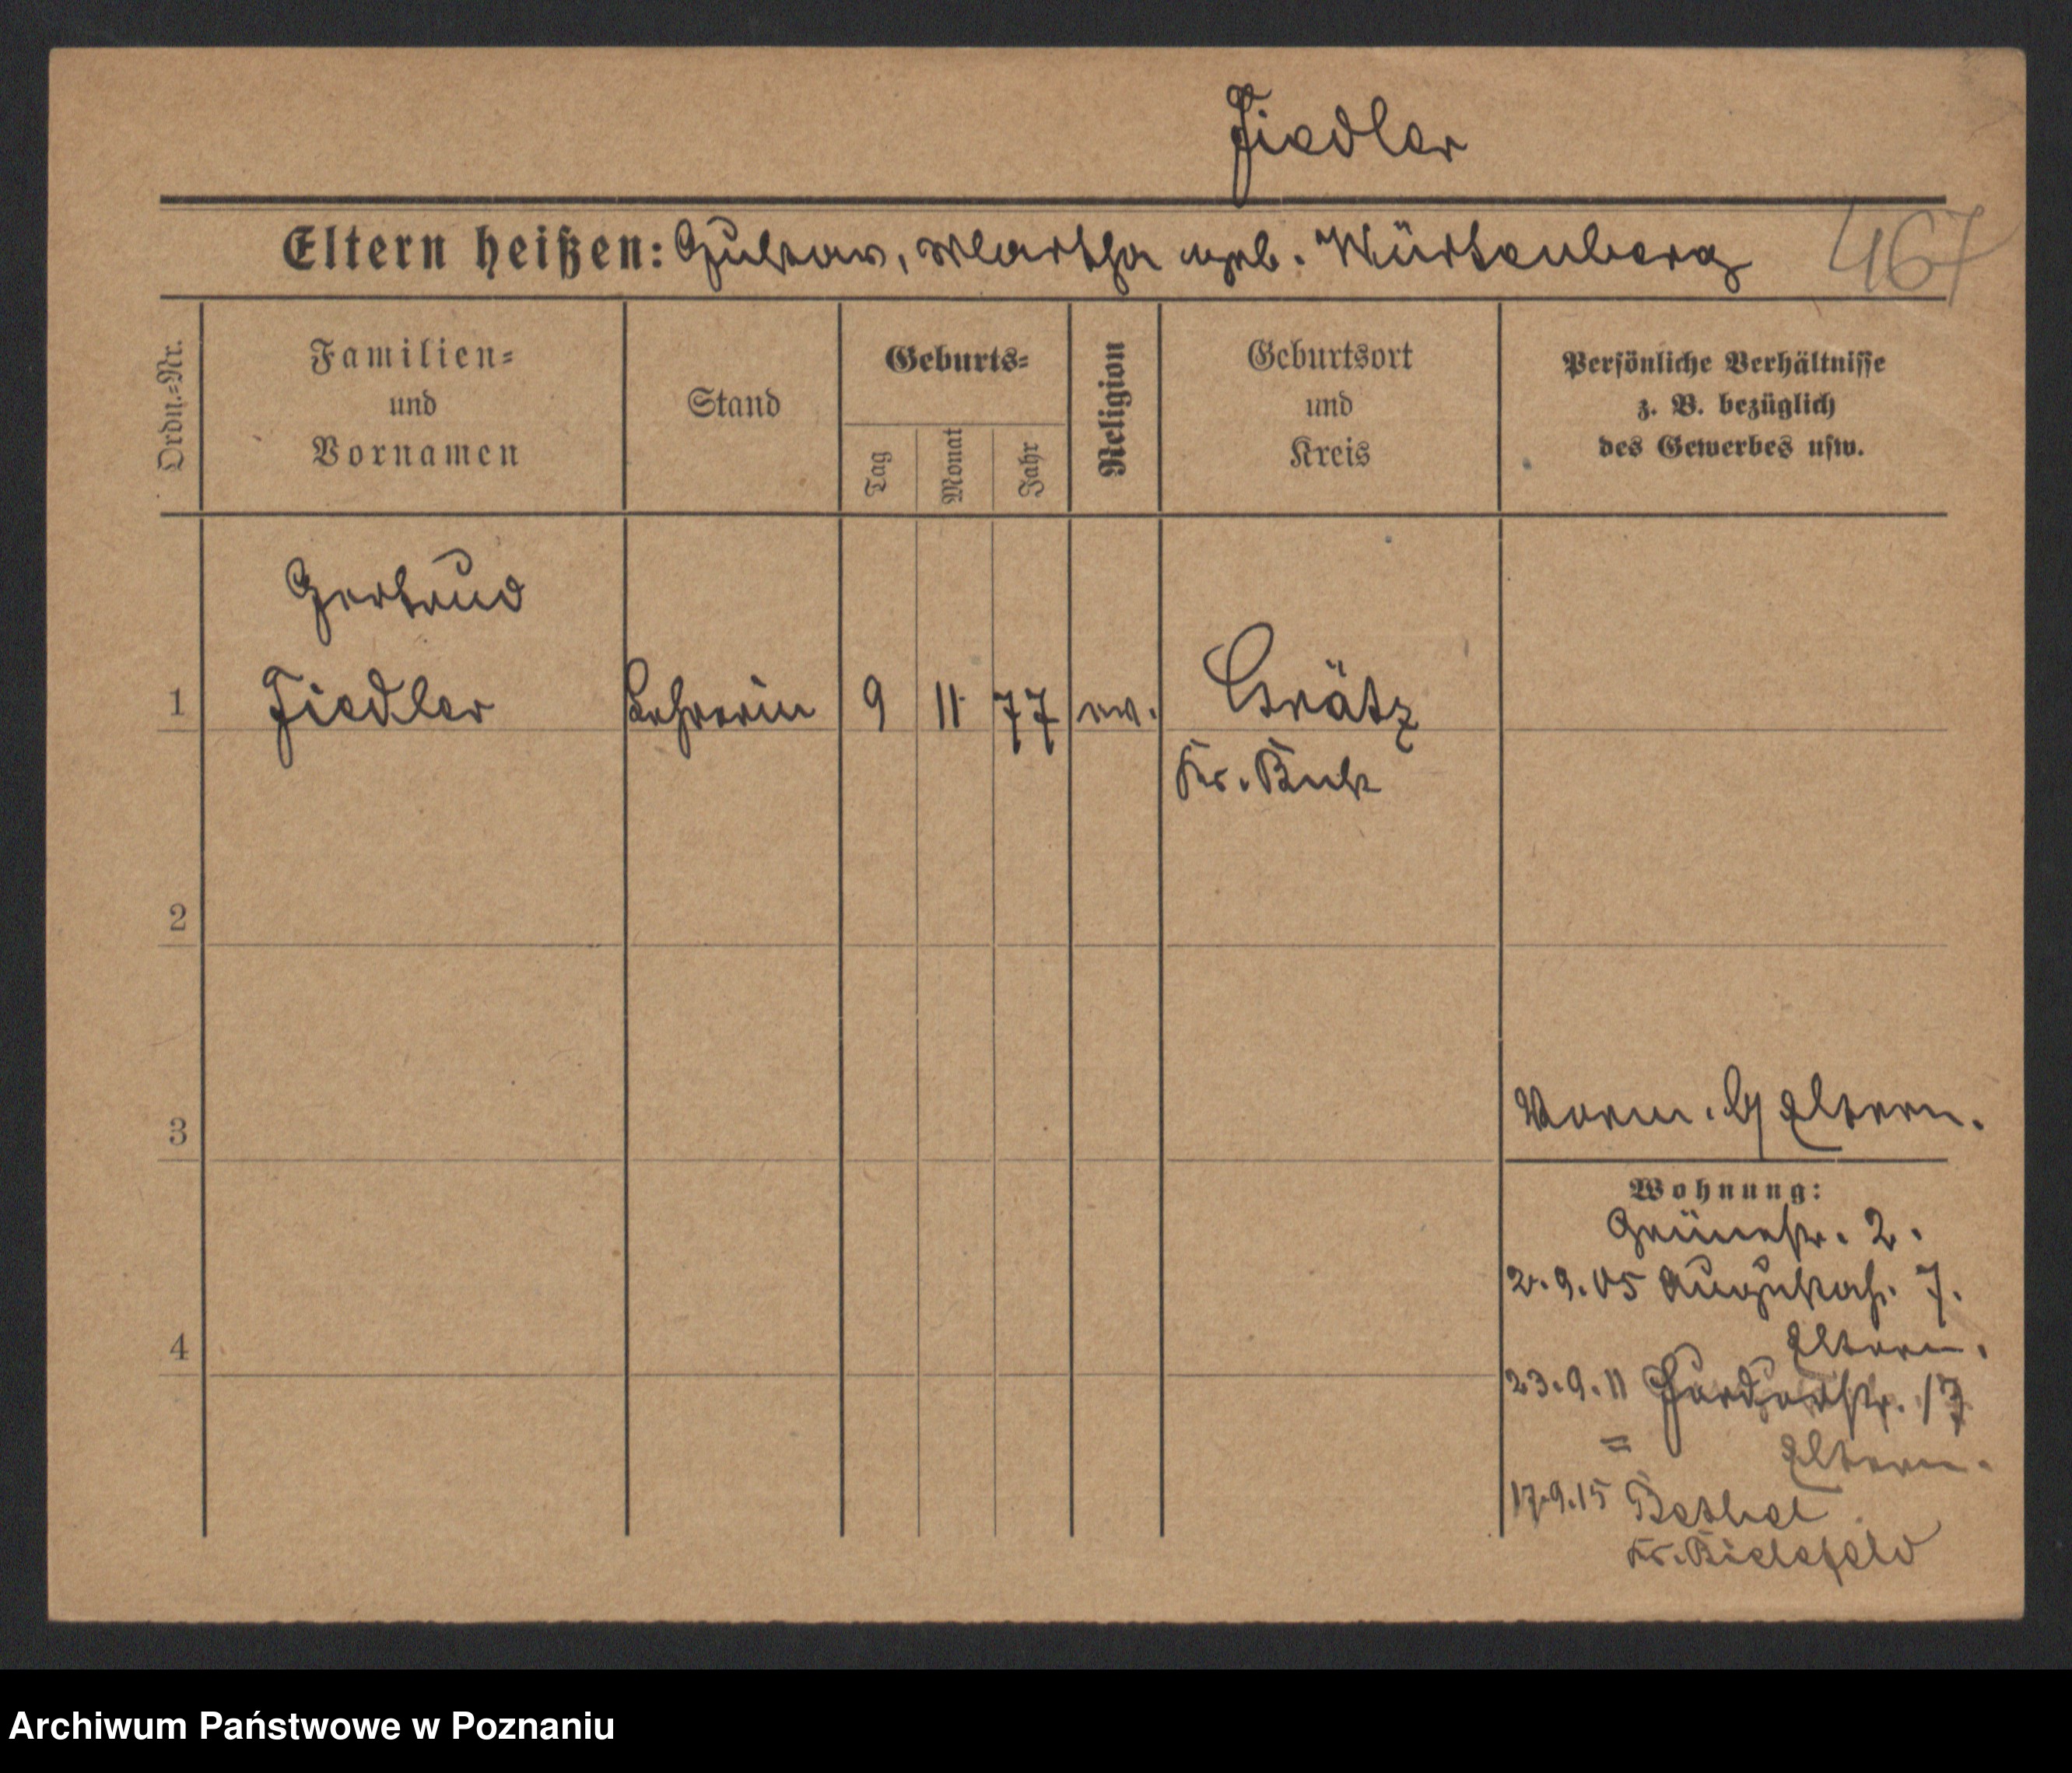 Fiedler
Eltern heißen: Gustav, Martha geb. Würtenberg
467
Ordn.=Nr.
Familien=
und
Vornamen
Stand
Geburts=
Tag
Monat
Jahr
Religion
Geburtsort
und
Kreis
Persönliche Verhältnisse
z. B. bezüglich
des Gewerbes usw.
Gertrud
1 Fiedler Lehrerin 9 11 77 ev. Grätz
Kr. Buk
2
3
Vorm. Eltern.
Wohnung:
Grünestr. 2.
2.9.05 Augustastr. 7.
4
Eltern.
23.9.11 13
= Eltern.
17.9.15 Bethel
Kr. Bielefeld
Archiwum Państwowe w Poznaniu